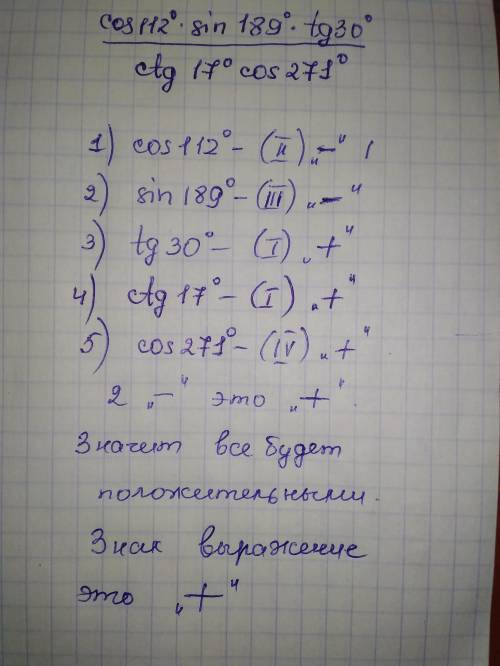 cos112°·sin 189°·tg30°
ctg 17° cos 271°
1) cos112° – (II) „–"
2) sin 189° – (III) „–"
3) tg 30° – (I) „+"
4) ctg 17° – (I) „+"
5) cos 271° – (IV) „+"
2 „–" это „+".
Значит все будет
положительными.
Знак выражение
это „+"